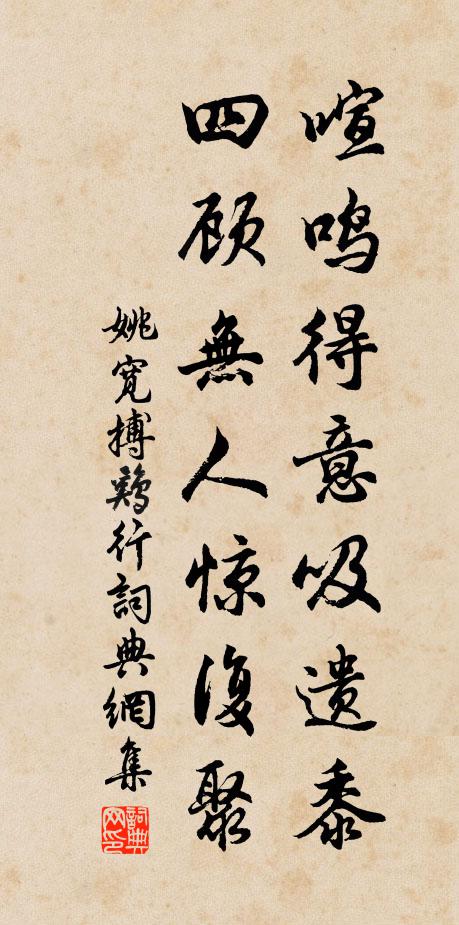 喧鸣得意吸遗黍
四顾無人惊復聚
姚寬搏鷄行詞典網集
詞典网印